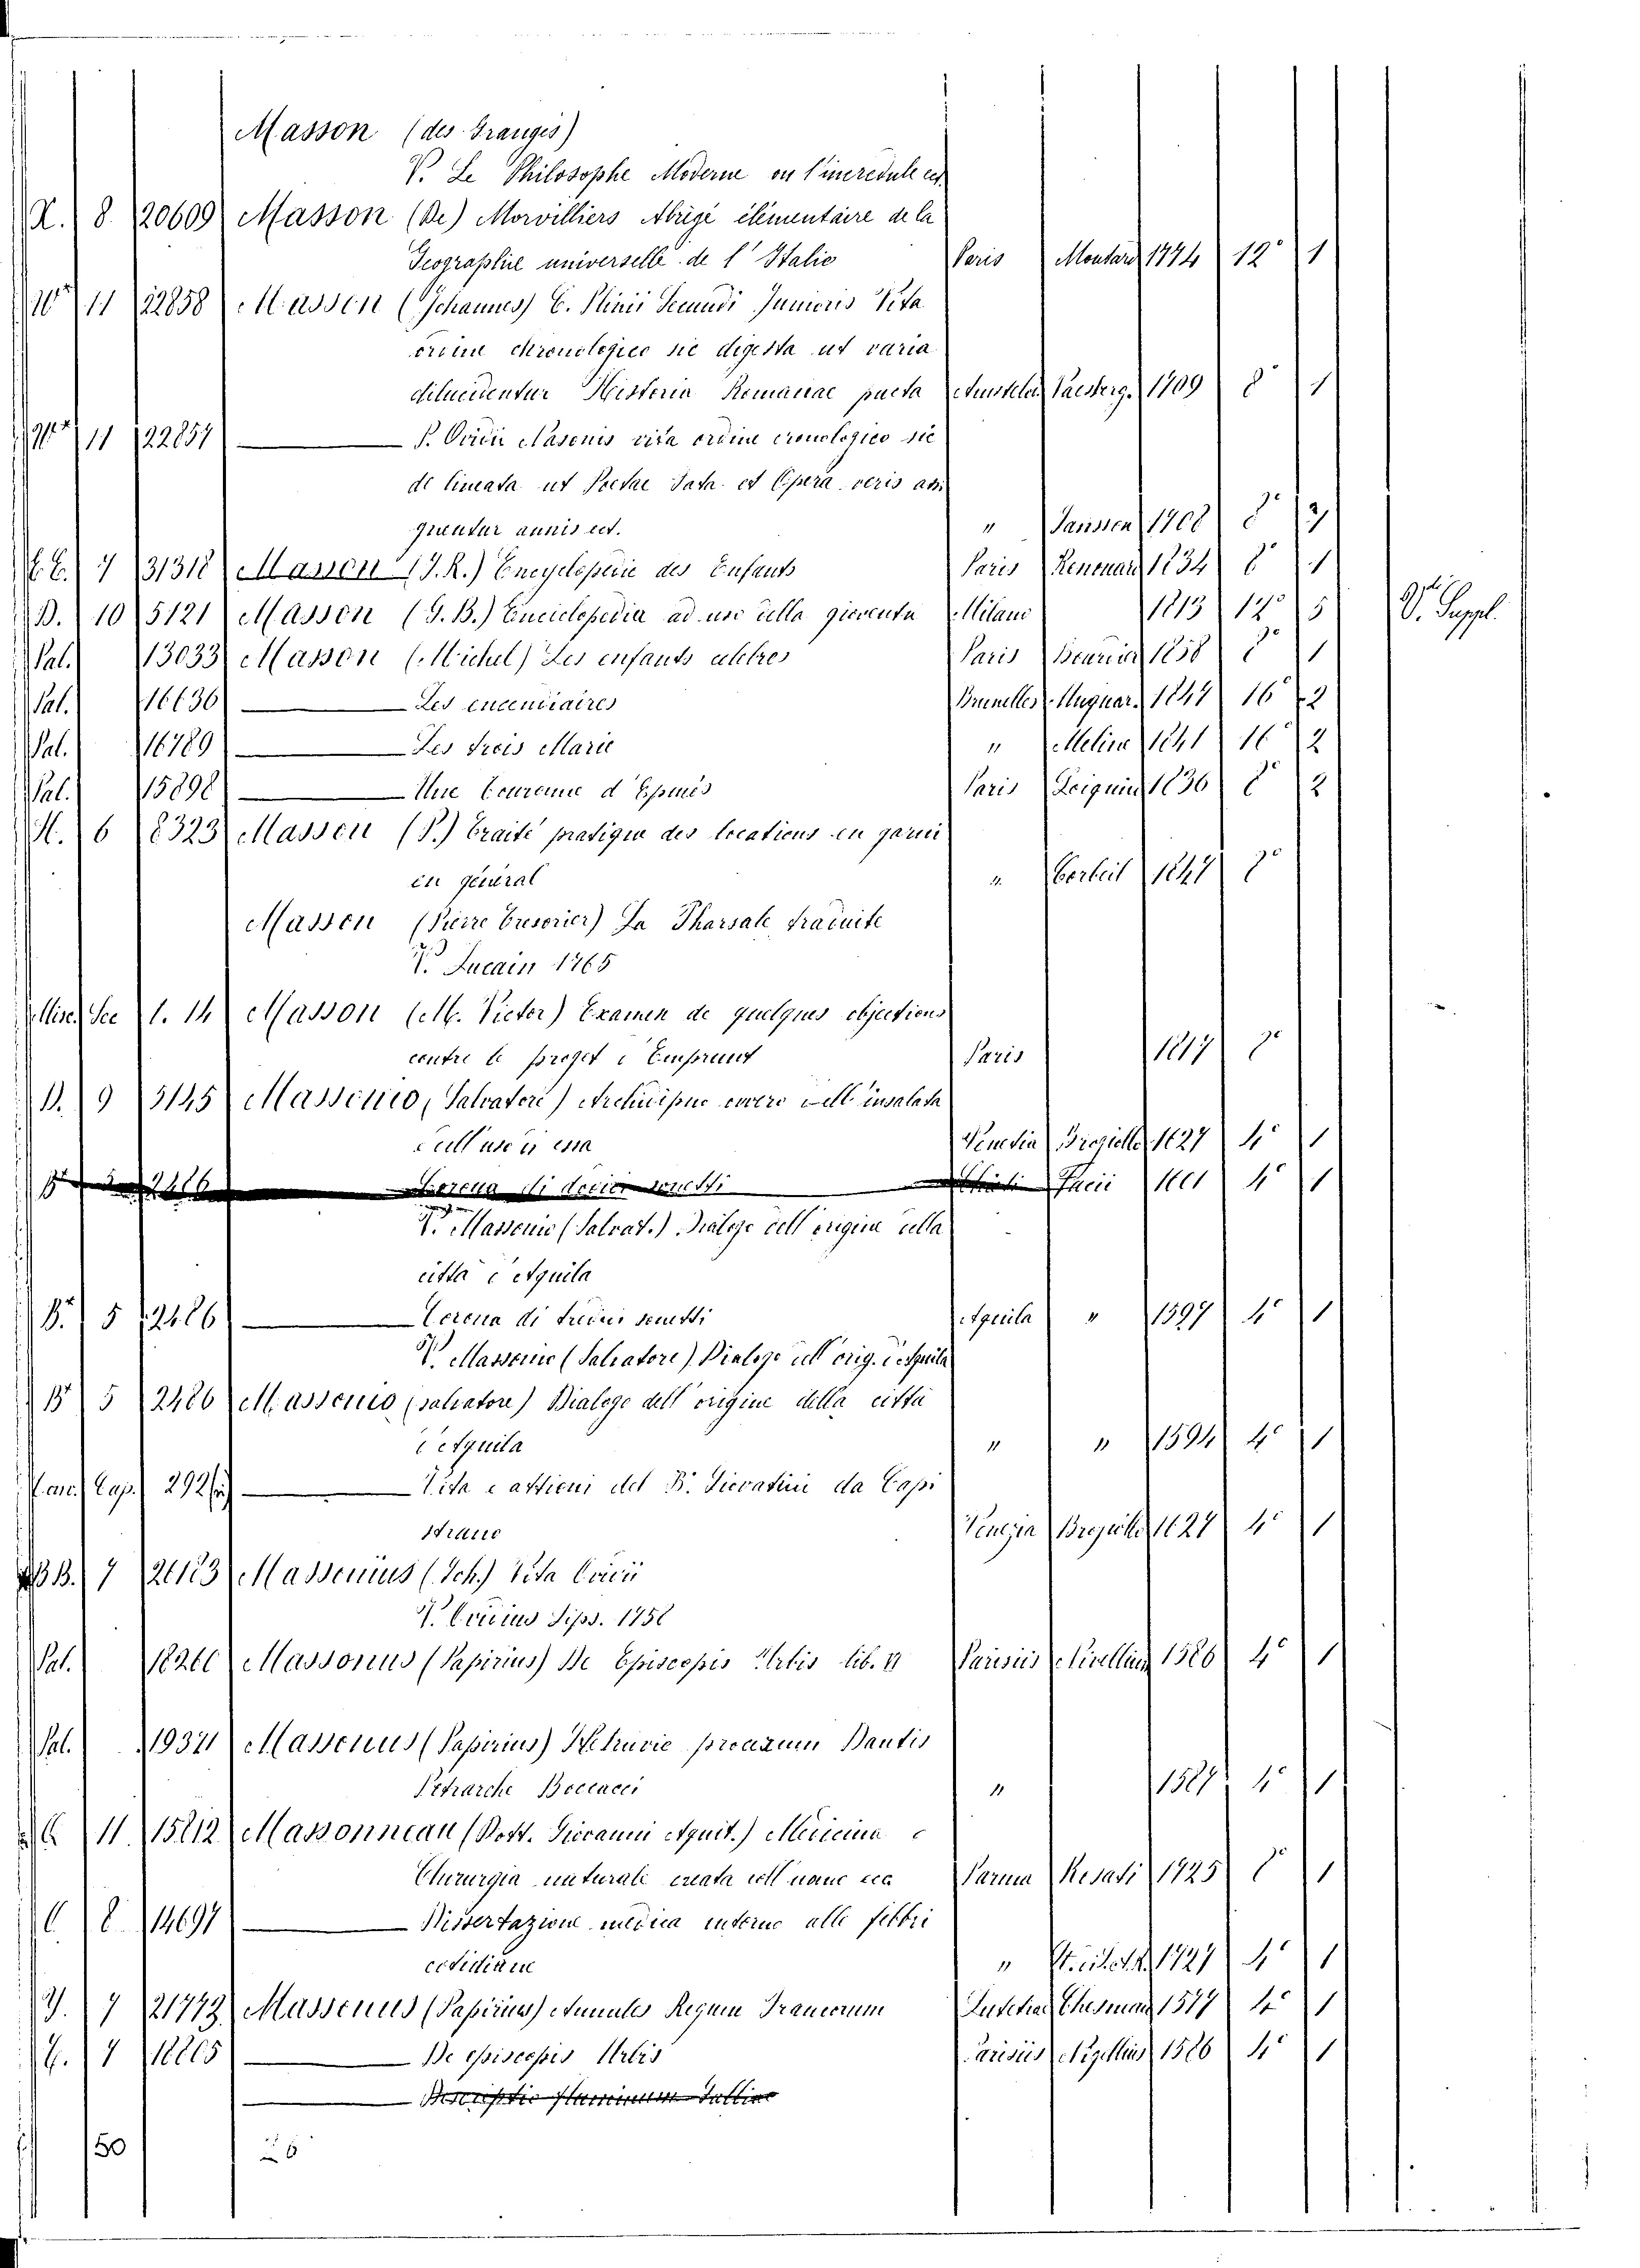 Masson (des Granges)
V. Le Philosophe Moderne ou l'incredule ect.
X. 8. 20609 Masson (De) Morvilliers Abrigé élémentaire de la
Geographie universelle de l'Italie Paris Moutard 1774 12° 1
11 22858 Masson (Johannes) C. Plinii Secundi Junioris Vita
ordine chronologico sic digesta ut varia
dilucidentur Historia Romanae pucta Amstelod. Vaesberg. 1709 8° 1
11 22857 P. Ovidii Nasonis vita ordine cronologico sic
de lineata ut Poetae Fata et Opera veris assi
gnentur annis ect. " Janssen 1708 8° 2
7 31318 Masson (J. R.) Encyclopedie des Enfants Paris Renouard 1834 8° 1
B. 10 5121 Masson (G. B.) Enciclopedia ad uso della gioventu Milano 1813 12° 5 V. Suppl.
Pal. 13033 Masson (Michel) Les enfants celebres Paris 1858 8° 1
Pal. 16636 Les encendiaires Bruxelles Muquar. 1844 16° 2
Pal. 16789 Les trois Marie " Meline 1841 16° 2
Pal. 15898 Une Couronne d'Epines Paris 1836 8° 2
H. 6 8323 Masson (P.) Traité pratique des locations en garni
en général " Corbeil 1847 8°
Masson (Pierre Tresorier) La Pharsale traduite
V. Lucain 1765
Misc. Sec 1. 14 Masson (M. Victor) Examen de quelques objections
contre le projet d'Emprunt Paris 1817 8°
B. 9 5145 Massonio (Salvatore) Archidipno overo dell'insalata
e dell'uso di essa Venetia Brogiollo 1627 4° 1
2486 Corona di dodici sonetti Facii 1601 4° 1
V. Massonio (Salvat.) Dialogo dell'origine della
città d'Aquila
B. 5 2486 Corona di tredici sonetti Aquila " 1597 4° 1
V. Massonio (Salvatore) Dialogo dell'orig. d'Aquila
B. 5 2486 Massonio (Salvatore) Dialogo dell'origine della città
d'Aquila " " 1594 4° 1
Cap. 292 Vita e attioni del B. Giovanni da Capi
strano Venezia Brogiollo 1627 4° 1
B. 7 Massonius (Joh.) Vita Ovidii
V. Ovidius Lips. 1758
Pal. 18260 Massonus (Papirius) De Episcopis Urbis lib. VI Parisiis Nivellium 1586 4° 1
Pal. Massonus (Papirius) Hetruvie procerum Dantis
Petrarche Boccacci " 1587 4° 1
C 11. 15812 Massonneau (Dott. Giovanni Aquit.) Medicina e
Chirurgia naturale creata coll'uomo ecc Parma Rosati 1725 8° 1
C. 8 14697 Dissertazione medica intorno alle febbri
cotidiane " 1727 4° 1
7 21773 Massonus (Papirius) Annales Regum Francorum Lutetiae Chesman 1577 4° 1
7 18805 De episcopis Urbis Parisiis 1586 4° 1
Descriptio fluminum Galliae
50 26